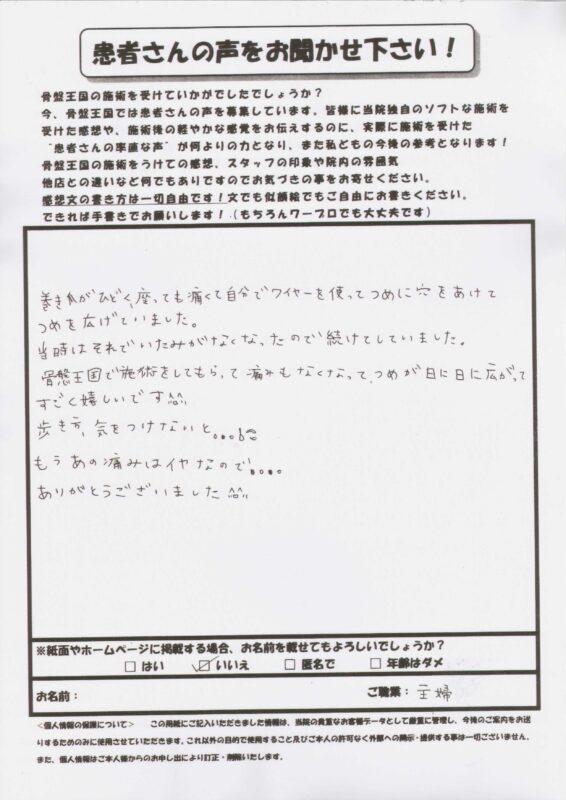 患者さんの声をお聞かせ下さい！
骨盤王国の施術を受けていかがでしたでしょうか？
今、骨盤王国では患者さんの声を募集しています。皆様に当院独自のソフトな施術を
受けた感想や、施術後の軽やかな感覚をお伝えするのに、実際に施術を受けた
“患者さんの率直な声”が何よりの力となり、また私どもの今後の参考となります！
骨盤王国の施術をうけての感想、スタッフの印象や院内の雰囲気
他店との違いなど何でもありですのでお気づきの事をお寄せください。
感想文の書き方は一切自由です！文でも似顔絵でもご自由にお書きください。
できれば手書きでお願いします！（もちろんワープロでも大丈夫です）
巻き爪がひどく、座っても痛くて自分でワイヤーを使ってつめに穴をあけて
つめを広げていました。
当時はそれでいたみがなくなったので続けてしていました。
骨盤王国で施術をしてもらって痛みもなくなって、つめが日に日に広がって
すごく嬉しいです^^
歩き方、気をつけないと...
もうあの痛みはイヤなので....
ありがとうございました^^
※紙面やホームページに掲載する場合、お名前を載せてもよろしいでしょうか？
□ はい ☑ いいえ □ 匿名で □ 年齢はダメ
お名前： ご職業：主婦
<個人情報の保護について> この用紙にご記入いただきました情報は、当院の貴重なお客様データとして厳重に管理し、今後のご案内をお送
りするためのみに使用させていただきます。これ以外の目的で使用すること及びご本人の許可なく外部への開示・提供する事は一切ございません。
また、個人情報はご本人様からのお申し出により訂正・削除いたします。